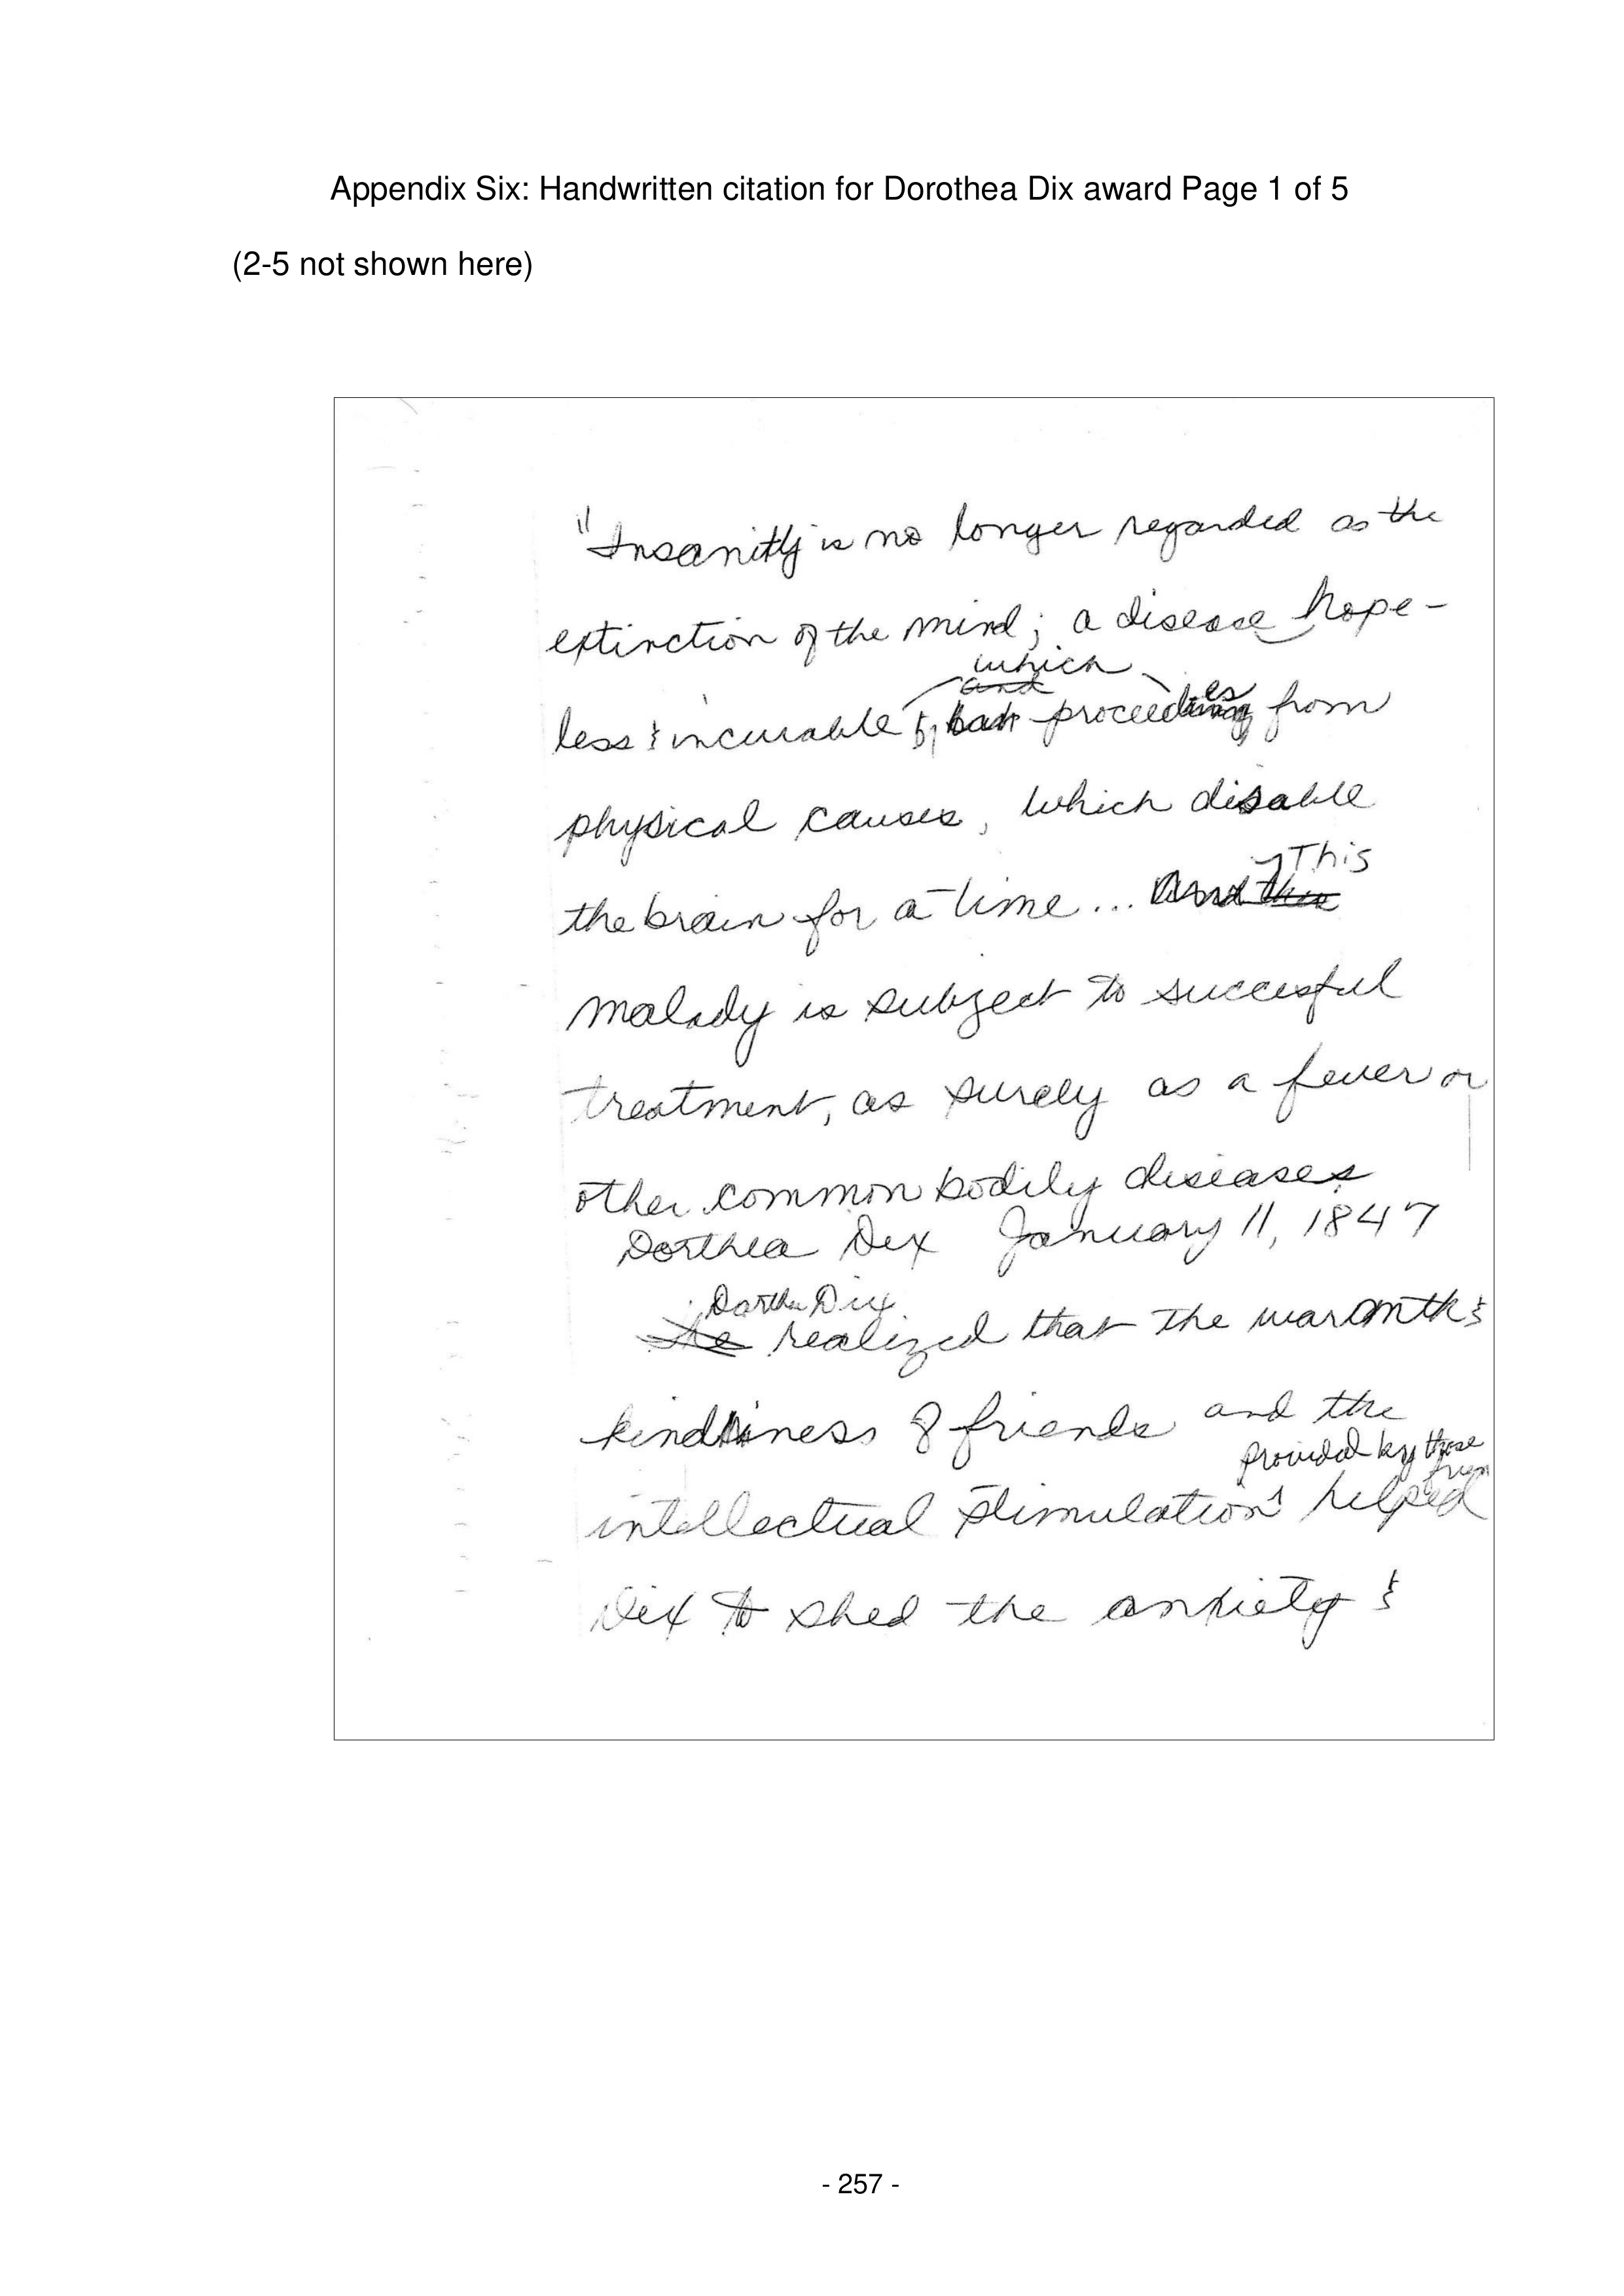 Appendix Six: Handwritten citation for Dorothea Dix award Page 1 of 5
(2-5 not shown here)
"Insanity is no longer regarded as the
extinction of the mind; a disease hope-
which
and
less & incurable, proceedes from
physical causes, which disable
This
the brain for a time... And this
malady is subject to succesful
treatment, as surely as a fever or
other common bodily diseases
Dorthea Dix January 11, 1847
Dorthea Dix
She realized that the warmth &
kindness of friends and the
provided by those
intellectual stimulation helped
Dix to shed the anxiety &
- 257 -